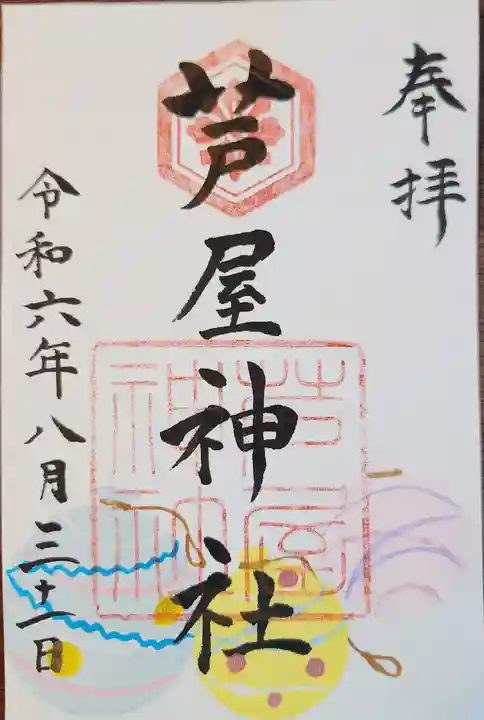 奉拝
芦屋神社
令和六年八月三十一日
芦屋
神社